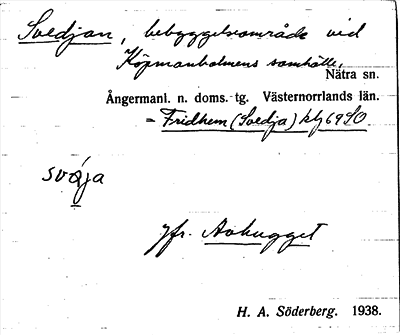 Svedjan, bebyggelseområde vid
Köpmanholmens samhälle,
Nätra sn.
Ångermanl. n. doms. tg. Västernorrlands län.
= Fridhem (Svedja) klj 6950
svaja
jfr. Avhugget
H. A. Söderberg. 1938.